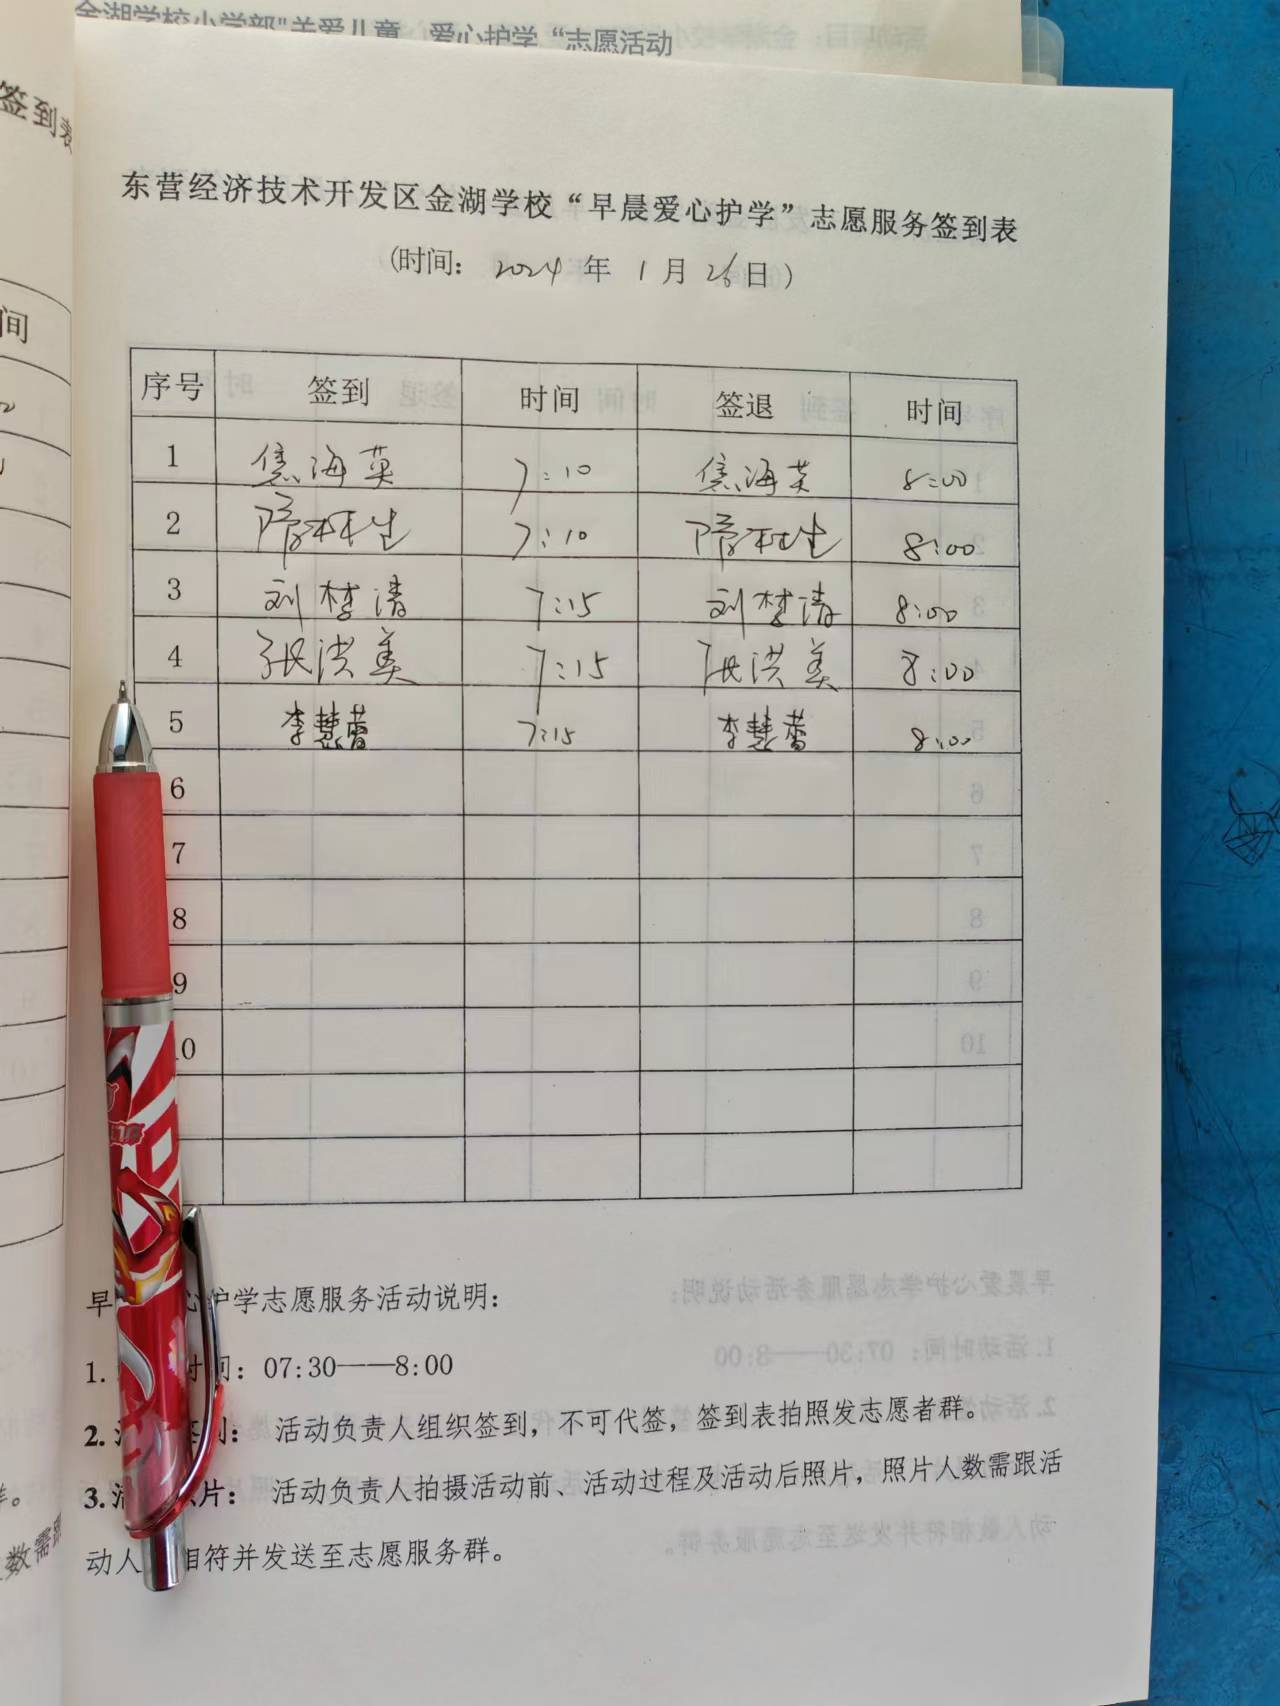 金湖学校小学部"关爱儿童 爱心护学“志愿活动
签到表
东营经济技术开发区金湖学校“早晨爱心护学”志愿服务签到表
(时间: 2024 年 1 月 26 日)
间
序号 签到 时间 签退 时间
1 焦海英 7:10 焦海英 8:00
2 隋 生 7:10 隋 生 8:00
3 刘梦清 7:15 刘梦清 8:00
4 张洪美 7:15 张洪美 8:00
5 李慧蕾 7:15 李慧蕾 8:00
6
7
8
9
10
早 心护学志愿服务活动说明:
1. 时间: 07:30——8:00
2. 活 签到: 活动负责人组织签到,不可代签,签到表拍照发志愿者群。
3. 活 照片: 活动负责人拍摄活动前、活动过程及活动后照片,照片人数需跟活
动人 相符并发送至志愿服务群。
数需跟